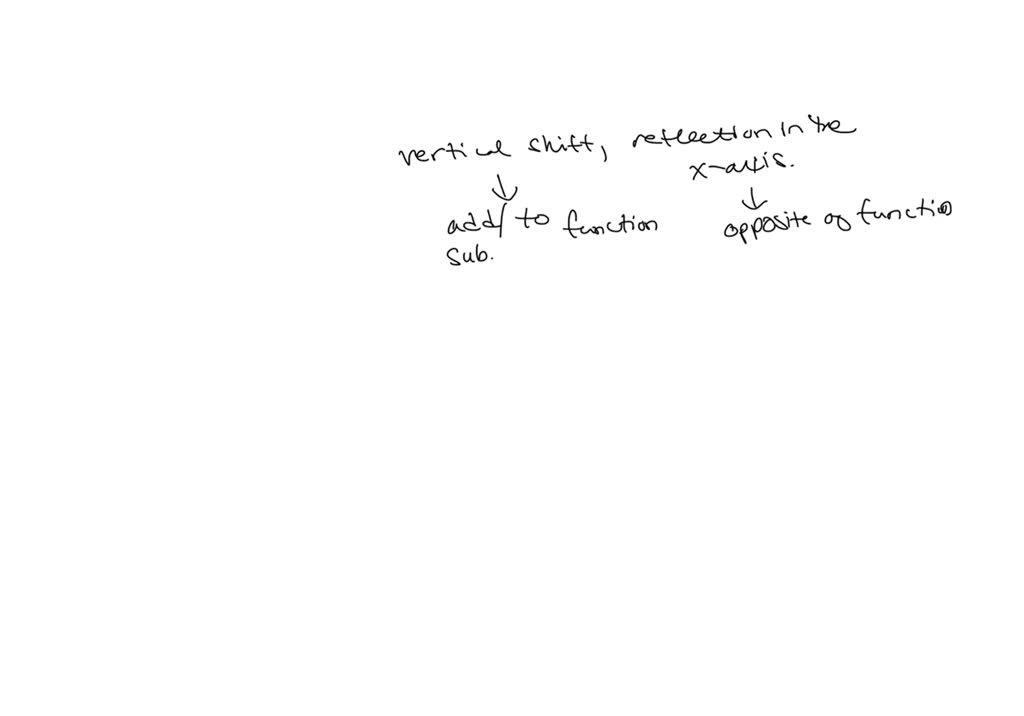 vertical shift, reflection in the
x-axis.
↓ ↓
add/ to function opposite of function
sub.